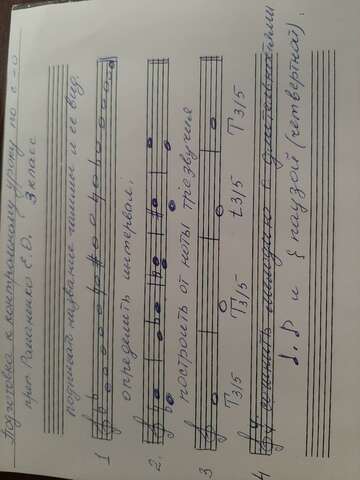 Подготовка к контрольному уроку по с-о
преп. Рамоненко Е.О. 3 класс
подпиши название гаммы и её вид.
1
определить интервал.
2.
построить от ноты трезвучия
3
Т3/5 Т3/5 t3/5 Т3/5
4 сочинить мелодию с
и паузой (четвертной).